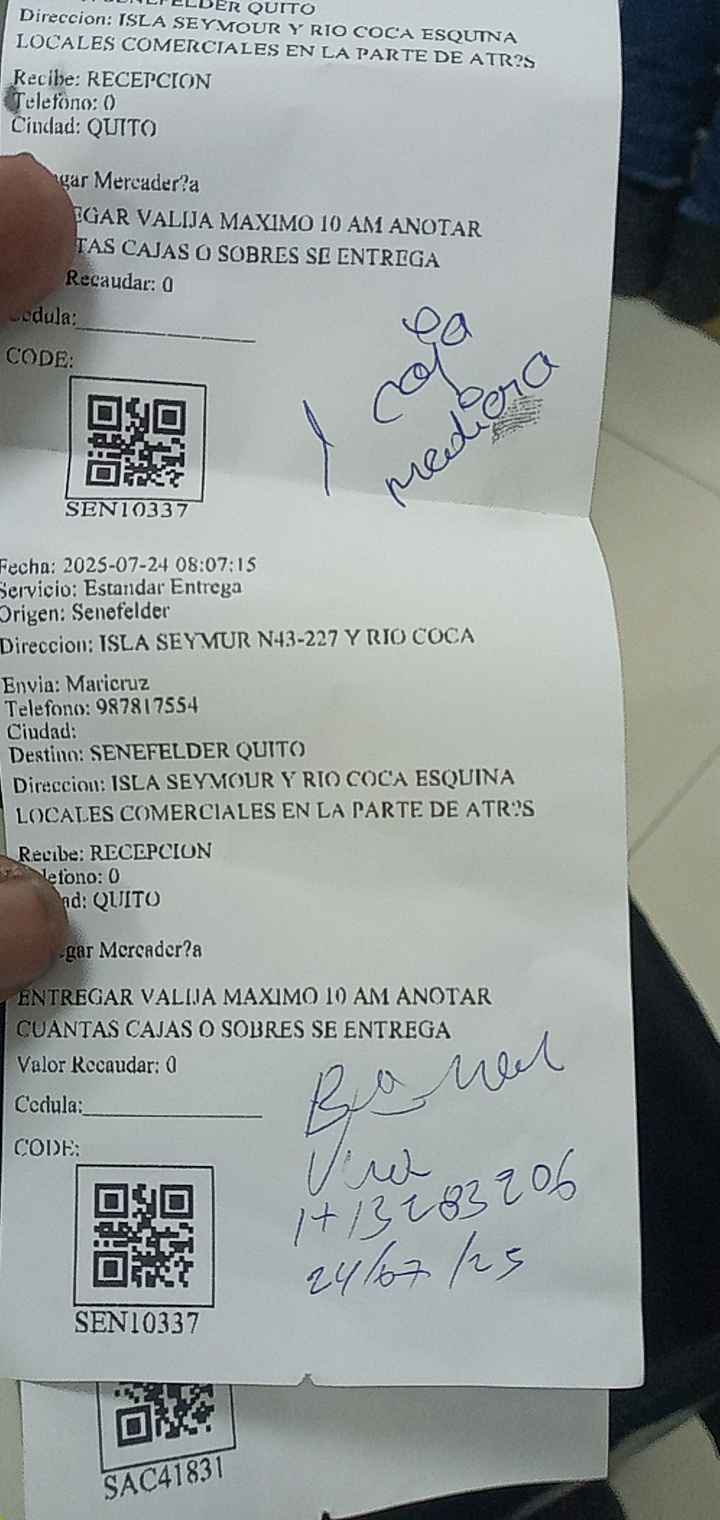 SENEFELDER QUITO
Direccion: ISLA SEYMOUR Y RIO COCA ESQUINA
LOCALES COMERCIALES EN LA PARTE DE ATR?S
Recibe: RECEPCION
Telefono: 0
Ciudad: QUITO
gar Mercader?a
EGAR VALIJA MAXIMO 10 AM ANOTAR
TAS CAJAS O SOBRES SE ENTREGA
Recaudar: 0
Cedula:
CODE:
1 caja
mediana
SEN10337
Fecha: 2025-07-24 08:07:15
Servicio: Estandar Entrega
Origen: Senefelder
Direccion: ISLA SEYMUR N43-227 Y RIO COCA
Envia: Maricruz
Telefono: 987817554
Ciudad:
Destino: SENEFELDER QUITO
Direccion: ISLA SEYMOUR Y RIO COCA ESQUINA
LOCALES COMERCIALES EN LA PARTE DE ATR?S
Recibe: RECEPCION
lefono: 0
ad: QUITO
gar Mercader?a
ENTREGAR VALIJA MAXIMO 10 AM ANOTAR
CUANTAS CAJAS O SOBRES SE ENTREGA
Valor Recaudar: 0
Cedula:
CODE:
24/07/25
SEN10337
SAC41831